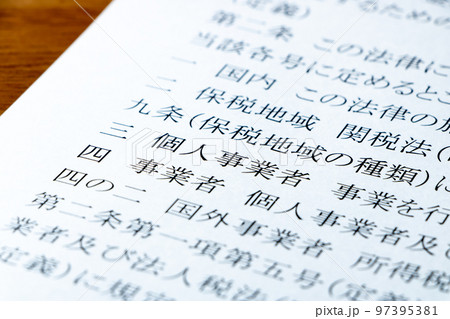 (定義)
するための
第二条 この法律に
当該各号に定めるとこ
一 国内 この法律の
二 保税地域 関税法(
九条(保税地域の種類)に
三 個人事業者 事業を行
四 事業者 個人事業者及び
四の二 国外事業者 所得税
第二条第一項第五号(定義
業者及び法人税法(
定義)に規定
pixta.jp - 97395381